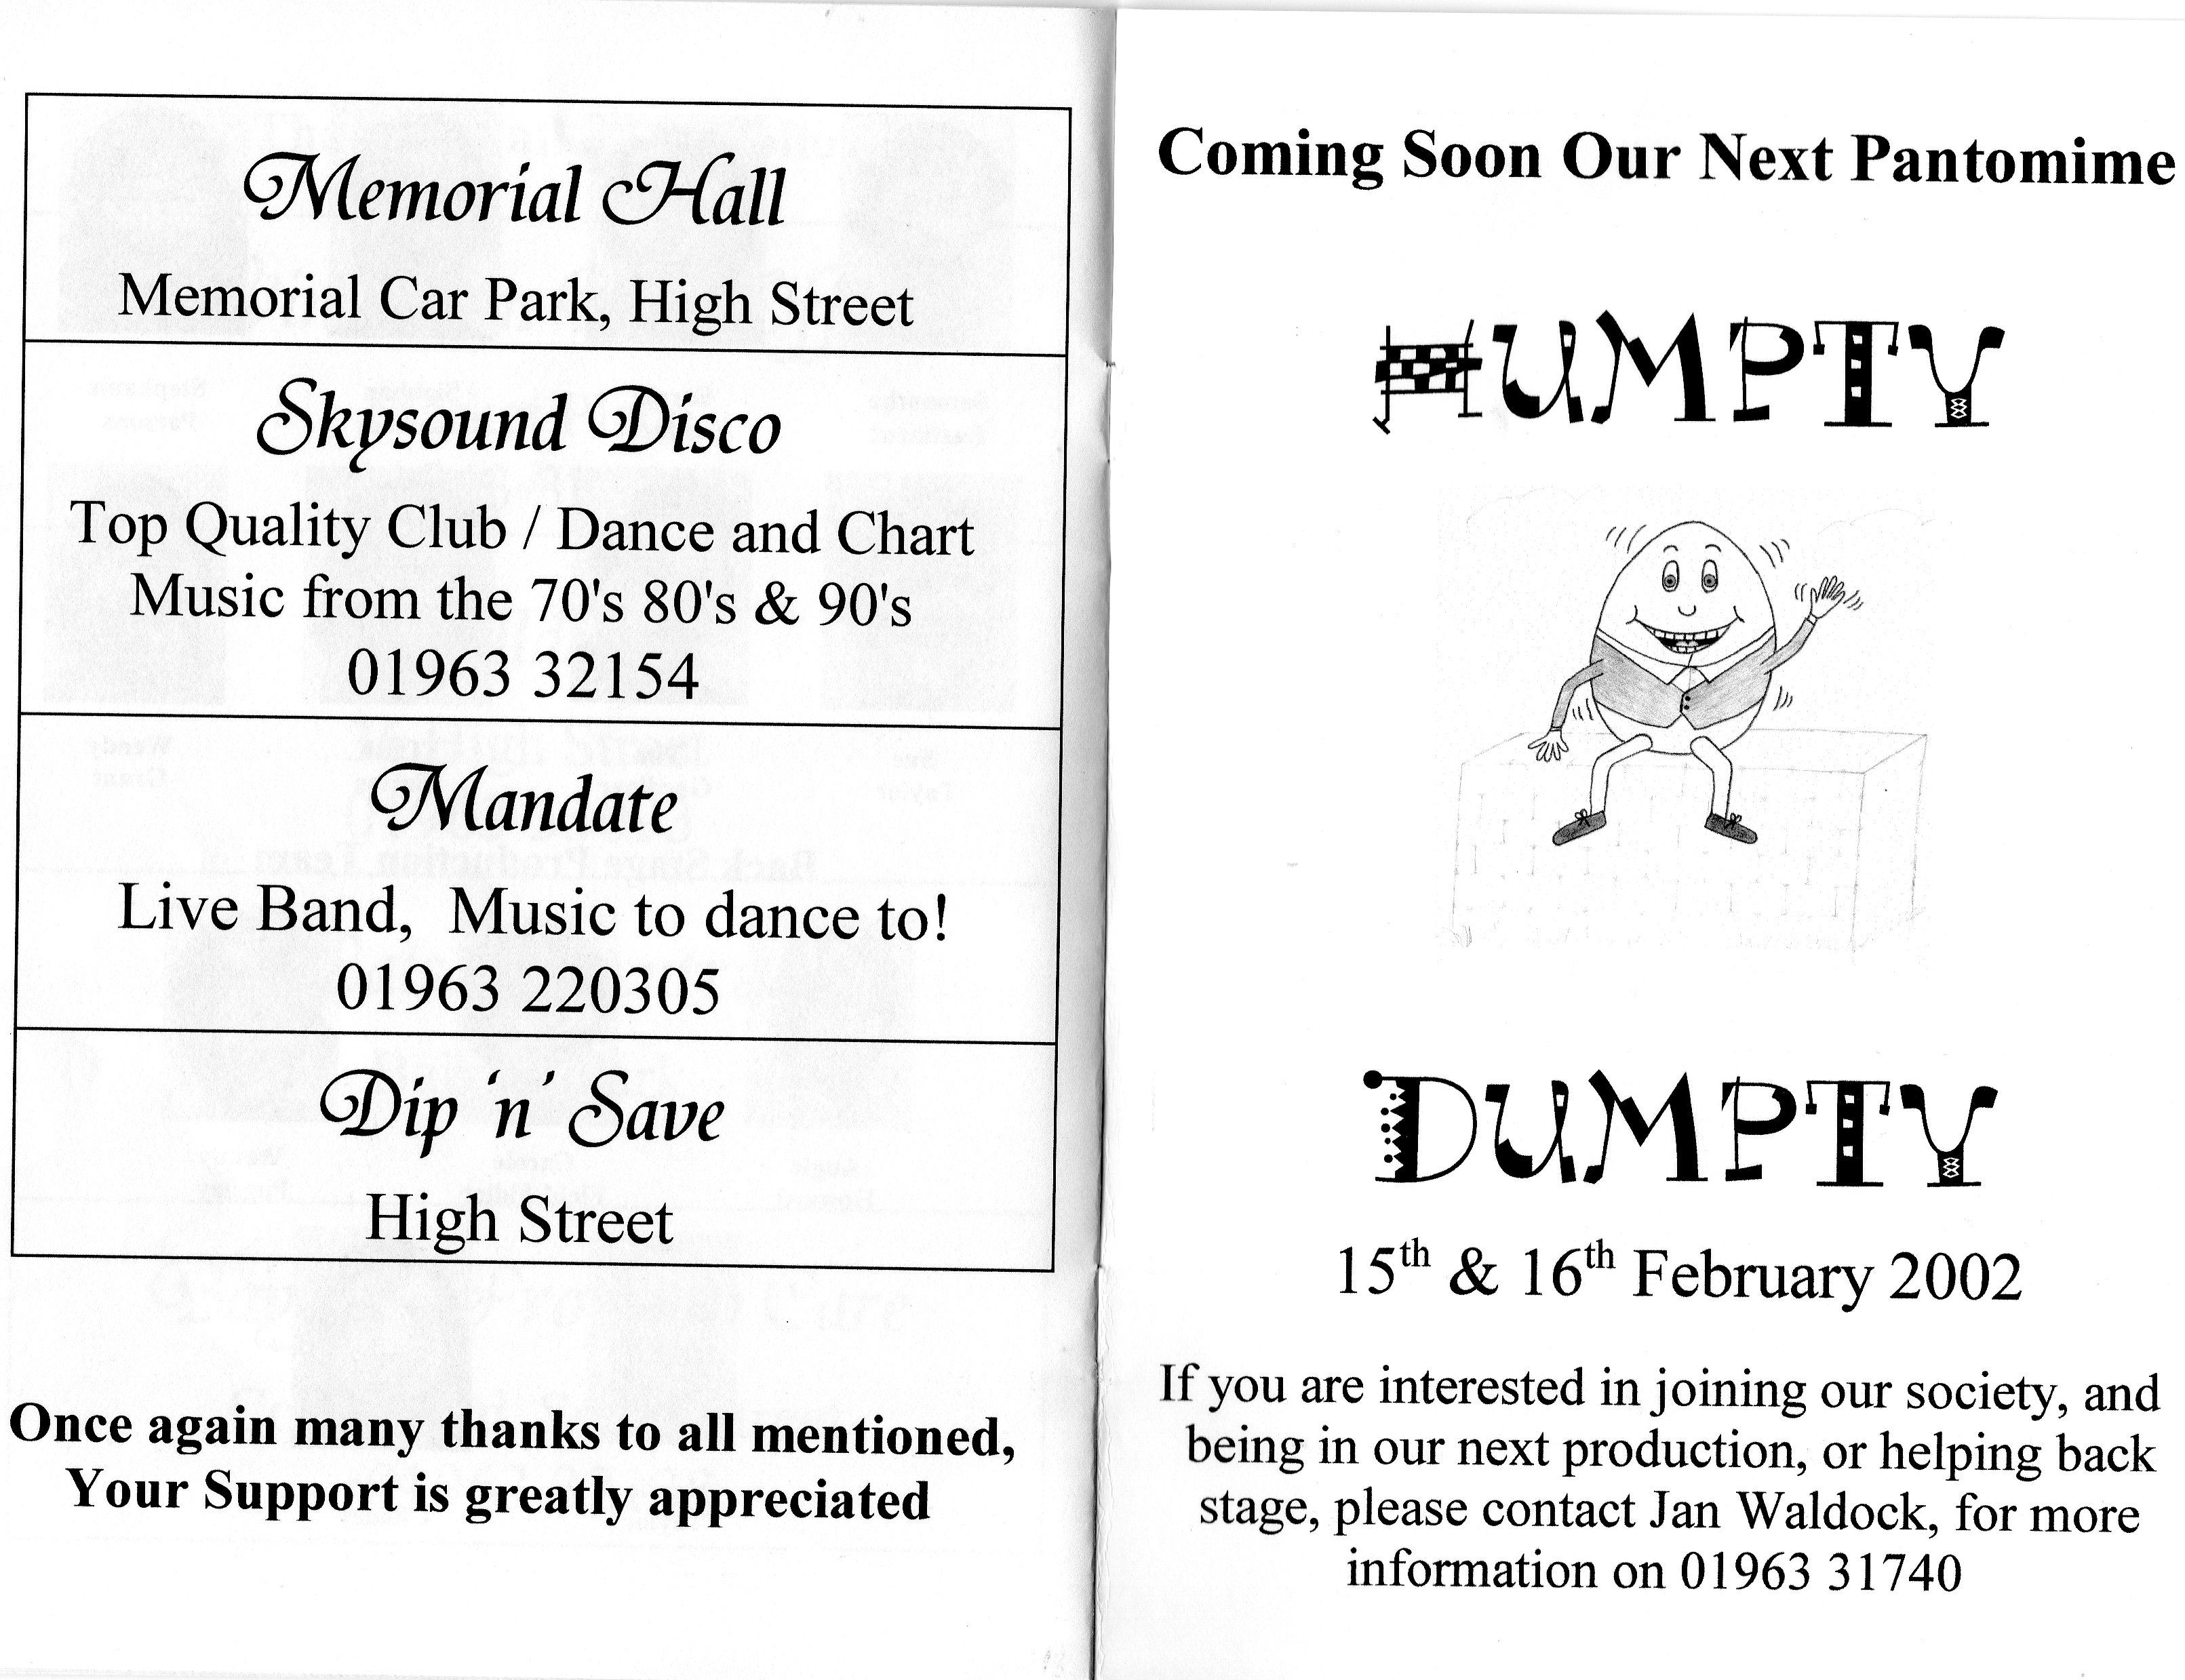 Memorial Hall
Memorial Car Park, High Street
Skysound Disco
Top Quality Club / Dance and Chart
Music from the 70's 80's & 90's
01963 32154
Mandate
Live Band, Music to dance to!
01963 220305
Dip 'n' Save
High Street
Once again many thanks to all mentioned,
Your Support is greatly appreciated
Coming Soon Our Next Pantomime
HUMPTY
DUMPTY
15th & 16th February 2002
If you are interested in joining our society, and
being in our next production, or helping back
stage, please contact Jan Waldock, for more
information on 01963 31740